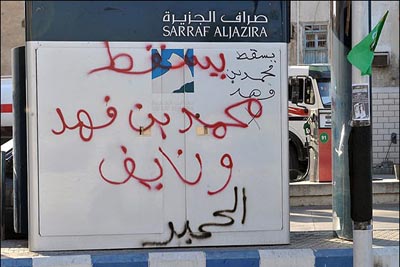 صراف الجزيرة
SARRAF ALJAZIRA
يسقط
محمد بن فهد
ونايف
الحمير
يسقط
محمد بن
فهد